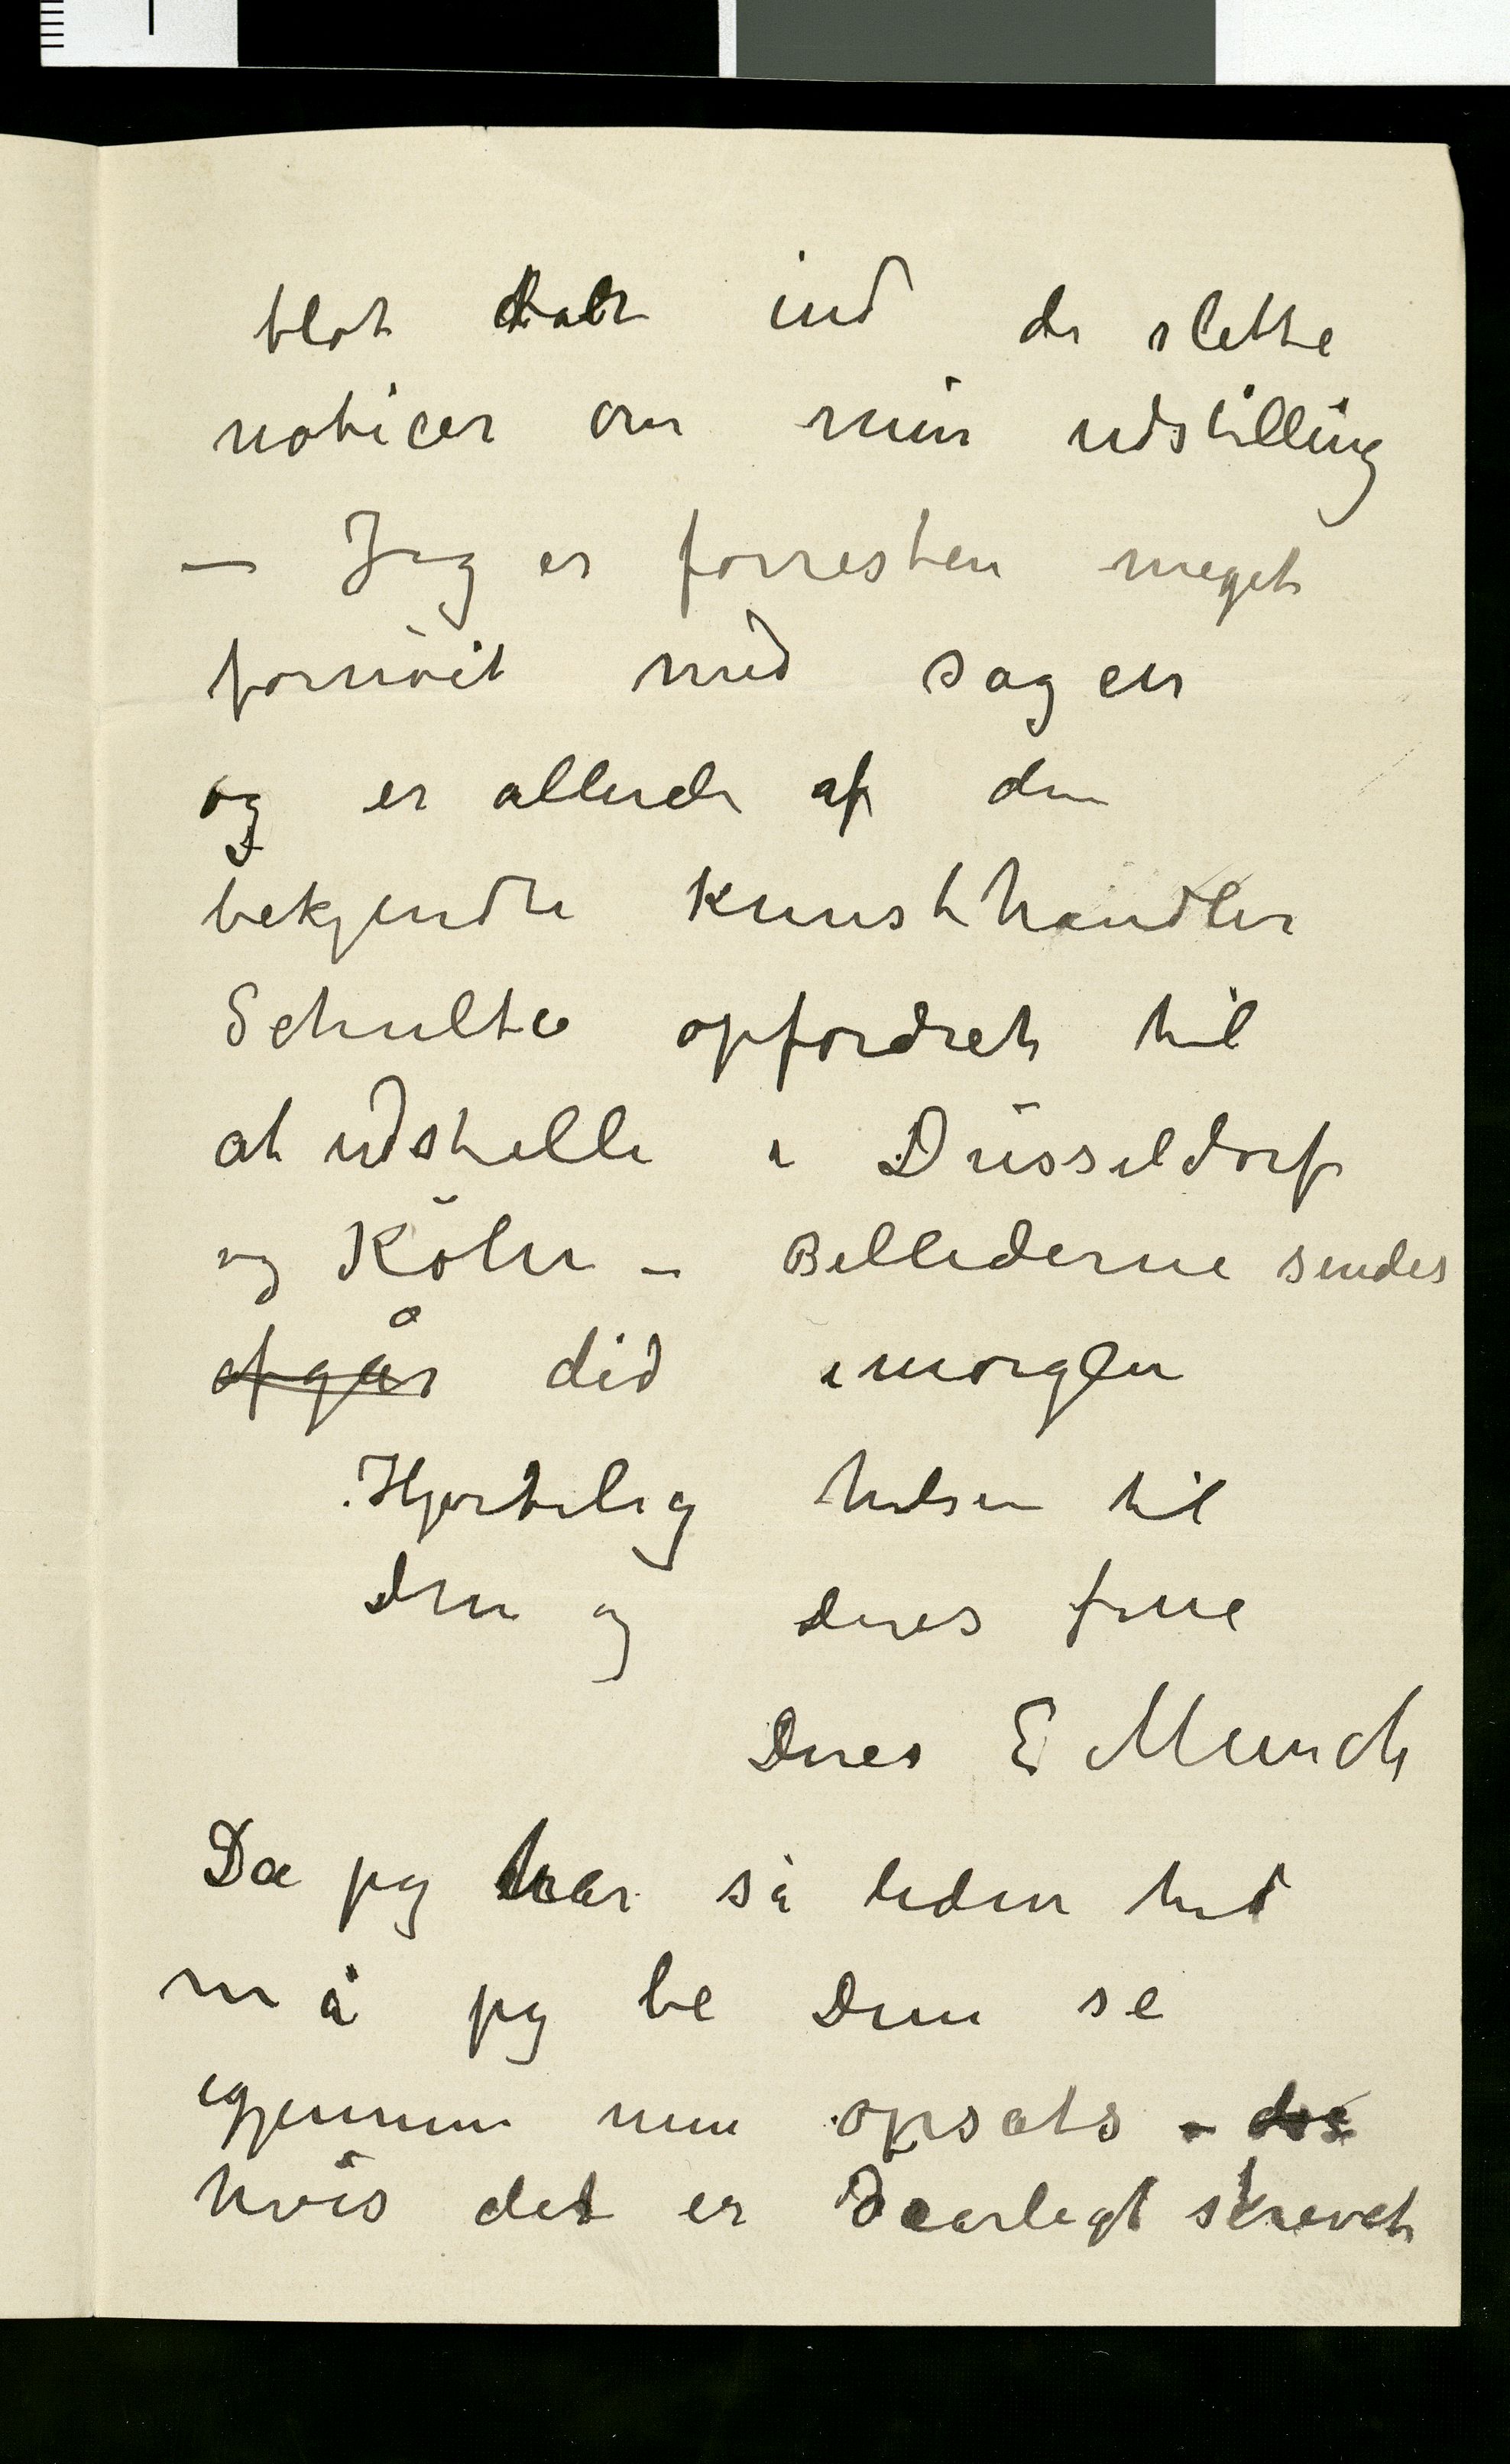 blot kabr ind de slette
noticer om min udstilling
— Jeg er forresten meget
fornöiet med sagen
og er allerede af den
bekjendte Kunsthandler
Schulte opfordret til
at udstille i Düsseldorf
og Köln – Billederne sendes
afgår did imorgen
Hjertelig hilsen til
Dem og Deres frue
Deres E Munch
Da jeg har så liden tid
må jeg be Dem se
igjennem min opsats –
hvis det er daarligt skrevet